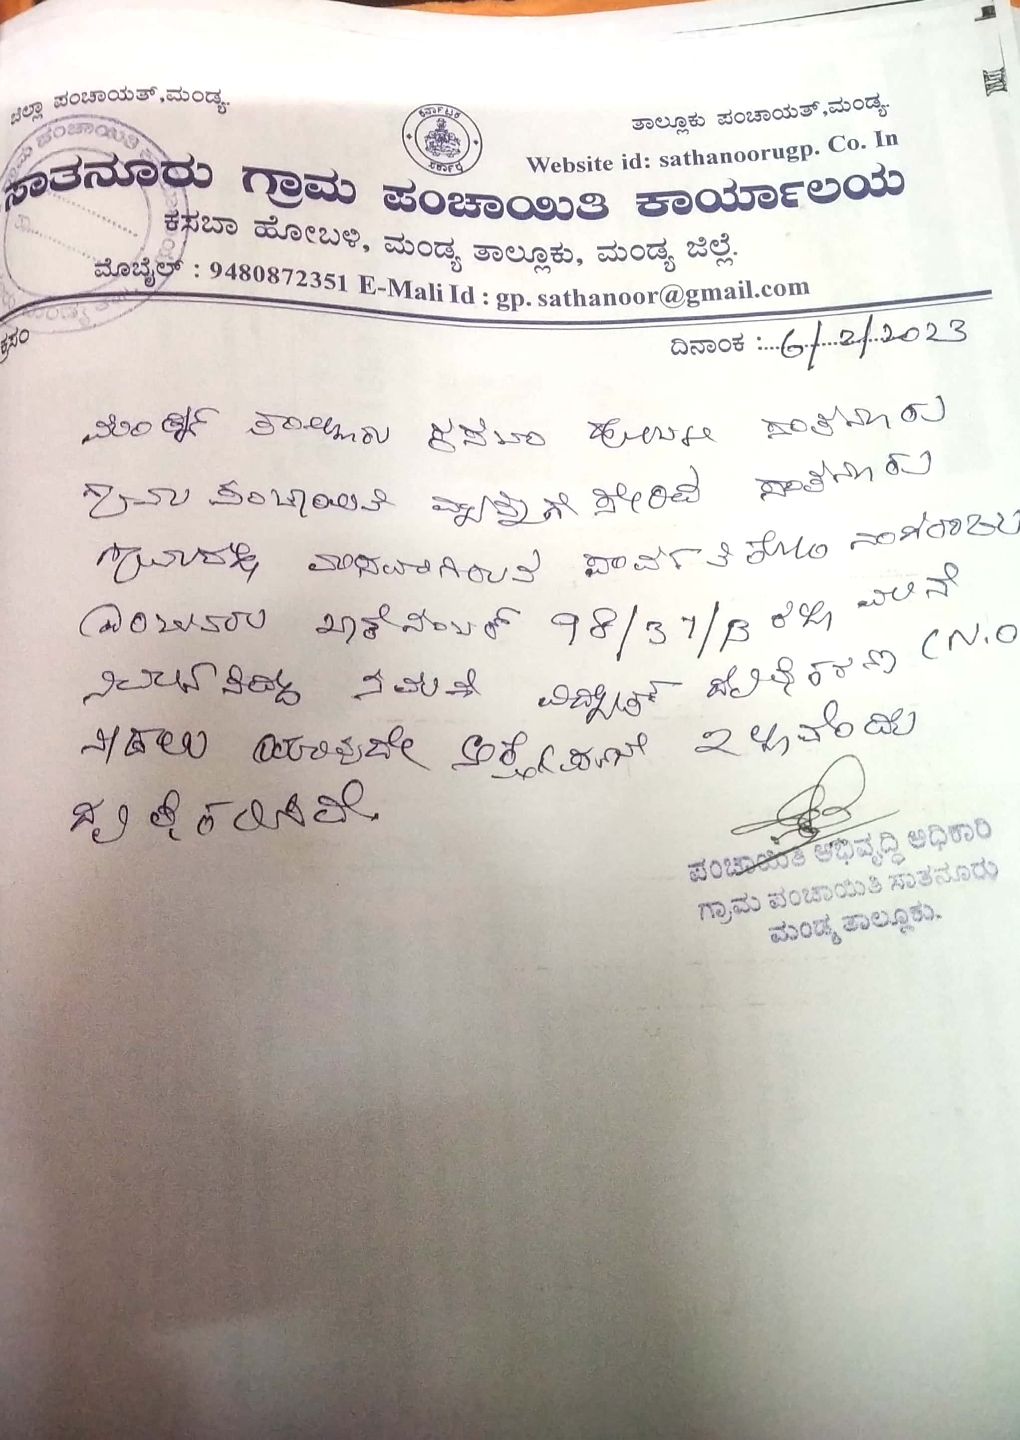 ಜಿಲ್ಲಾ ಪಂಚಾಯತ್,ಮಂಡ್ಯ.
ತಾಲ್ಲೂಕು ಪಂಚಾಯತ್,ಮಂಡ್ಯ.
Website id: sathanoorugp. Co. In
ಸಾತನೂರು ಗ್ರಾಮ ಪಂಚಾಯಿತಿ ಕಾರ್ಯಾಲಯ
ಕಸಬಾ ಹೋಬಳಿ, ಮಂಡ್ಯ ತಾಲ್ಲೂಕು, ಮಂಡ್ಯ ಜಿಲ್ಲೆ.
ಮೊಬೈಲ್ : 9480872351 E-Mali Id : gp. sathanoor@gmail.com
ಕ್ರಸಂ
ದಿನಾಂಕ : 6/2/2023
ಮಂಡ್ಯ ತಾಲ್ಲೂಕು ಕಸಬಾ ಹೋಬಳಿ ಸಾತನೂರು
ಗ್ರಾಮ ಪಂಚಾಯಿತಿ ವ್ಯಾಪ್ತಿಗೆ ಸೇರಿದ ಸಾತನೂರು
ಗ್ರಾಮದಲ್ಲಿ ಪಾರ್ವತಿ ಕೋಂ
ಖಾತೆ ನಂಬರ್ 98/37/B ರಲ್ಲಿ ಮನೆ
ವಿದ್ಯುತ್ ದೃಢೀಕರಣ (N.O
ನೀಡಲು ಯಾವುದೇ ಆಕ್ಷೇಪಣೆ ಇಲ್ಲವೆಂದು
ದೃಢೀಕರಿಸಿದೆ.
ಪಂಚಾಯಿತಿ ಅಭಿವೃದ್ಧಿ ಅಧಿಕಾರಿ
ಗ್ರಾಮ ಪಂಚಾಯಿತಿ ಸಾತನೂರು
ಮಂಡ್ಯ ತಾಲ್ಲೂಕು.